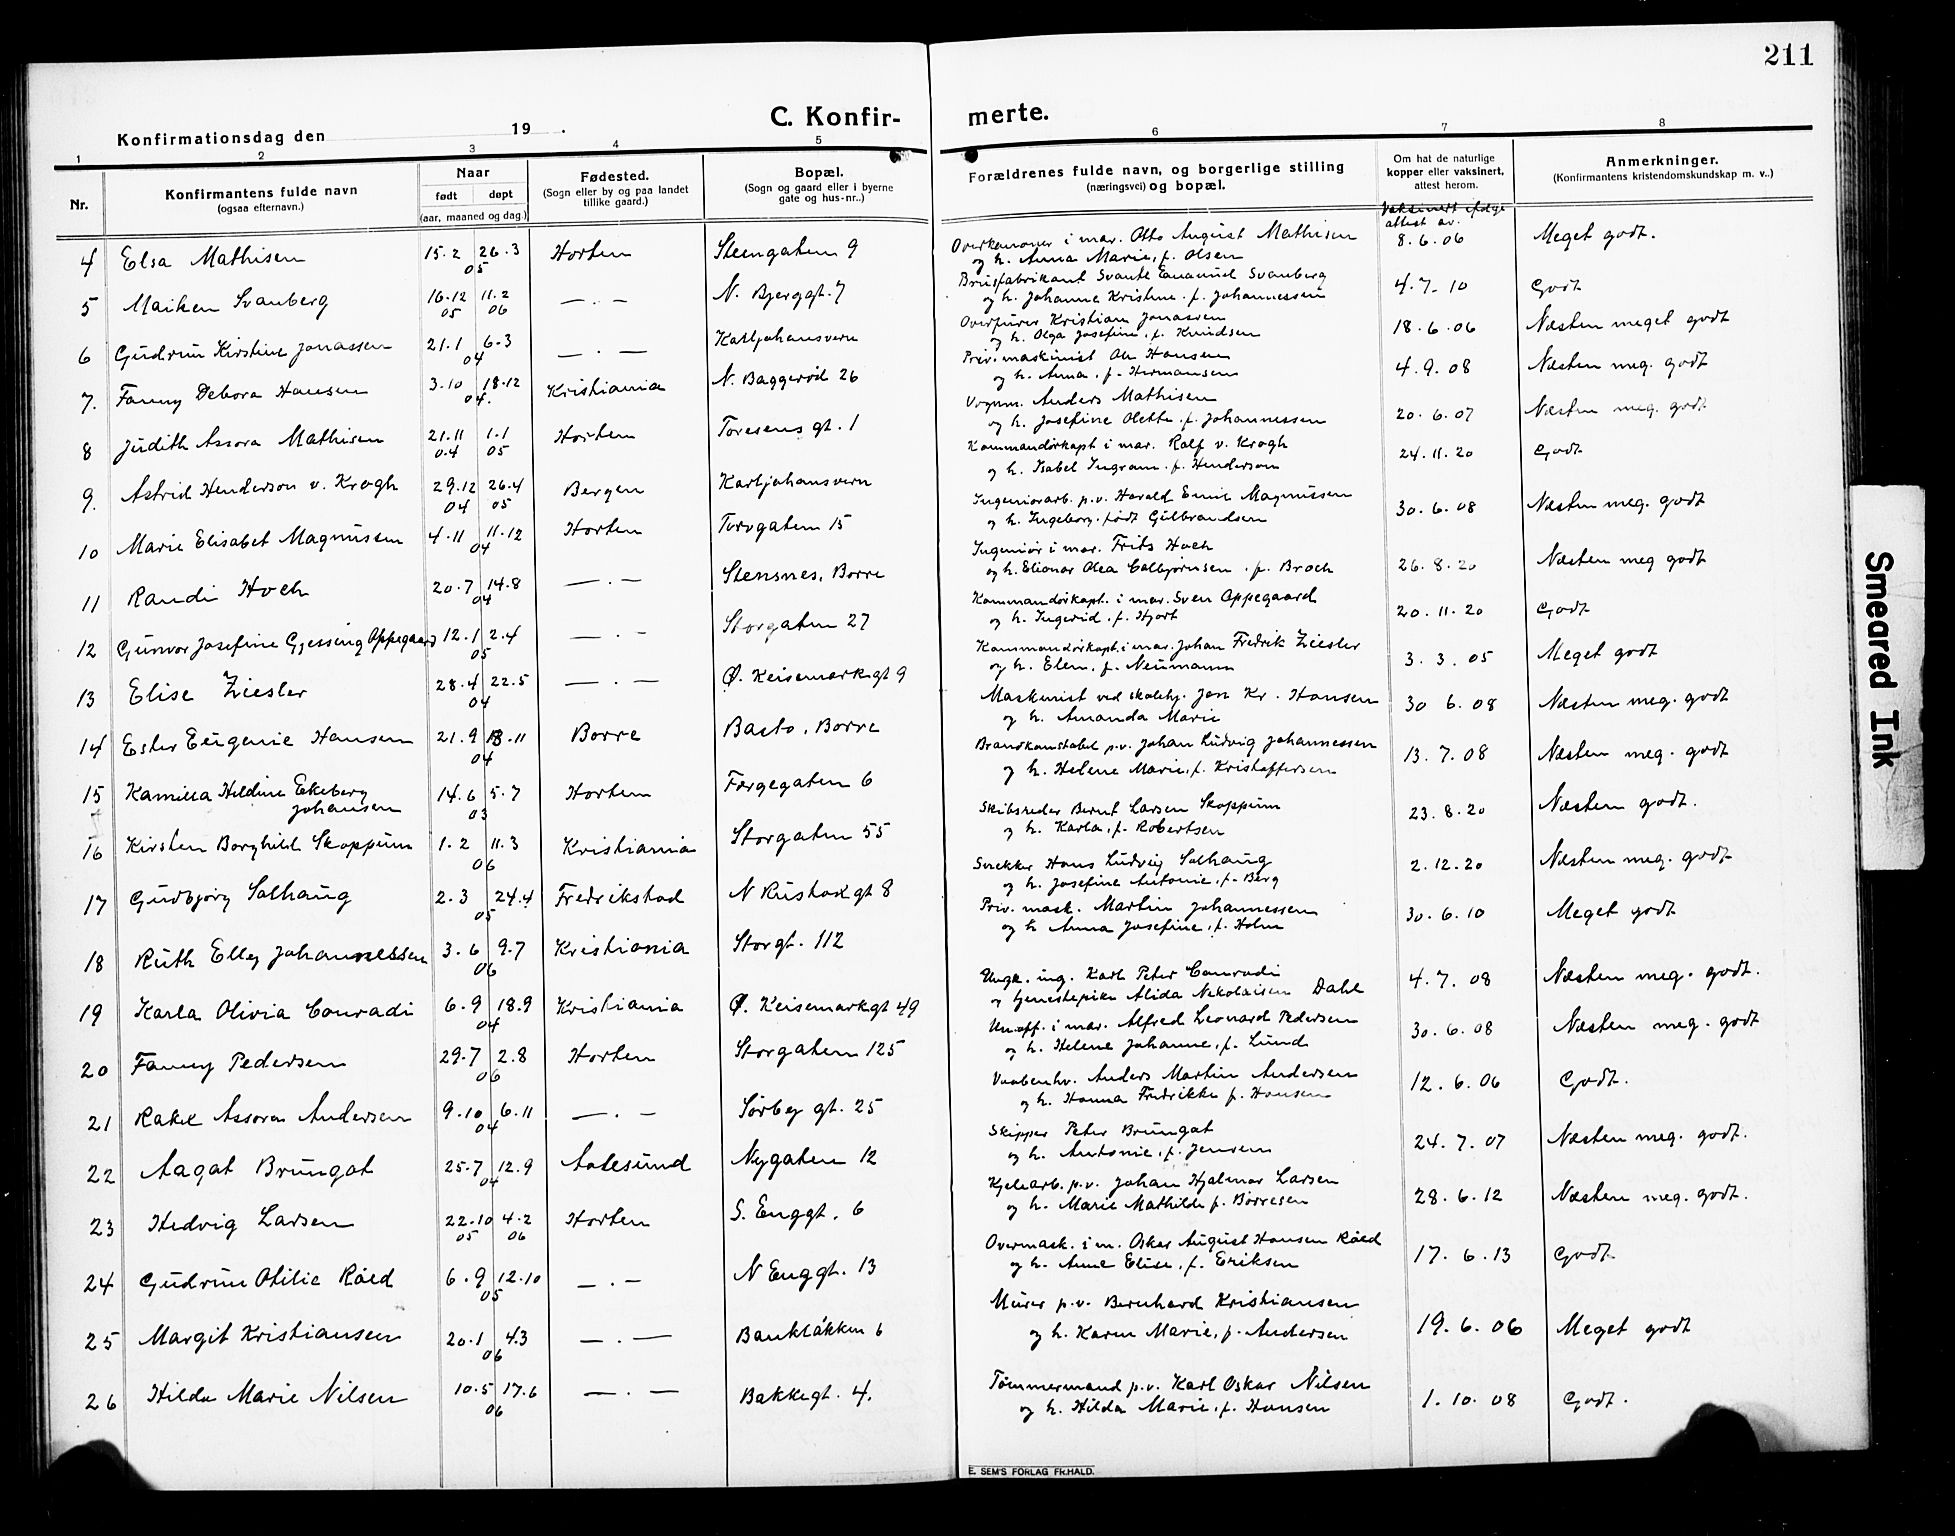 211
C. Konfirmerte.
Konfirmationsdag den 19 .
1 2 3 4 5 6 7 8
Nr. Konfirmantens fulde navn (ogsaa efternavn.) Naar født døpt (aar, maaned og dag.) Fødested. (Sogn eller by og paa landet tillike gaard.) Bopæl. (Sogn og gaard eller i byerne gate og hus-nr..) Forældrenes fulde navn, og borgerlige stilling (næringsvei) og bopæl. Om hat de naturlige kopper eller vaksinert, attest herom. Anmerkninger. (Konfirmantens kristendomskundskap m. v..)
Vaksinert ifølge attest av.
4 Elsa Mathisen 15.2 26.3 05 Horten Steengaten 9 Overkanoner i mar. Otto August Mathisen 8.6.06 Meget godt.
og h. Anna Marie, f. Olsen
5 Maiken Svanberg 16.12 05 11.2 06 — . — N. Bjerggt. 7 Brusfabrikant Svante Emanuel Svanberg 4.7.10 Godt
og h. Johanne Kristine f. Johannessen
6 Gudrun Kirstine Jonassen 21.1 6.3 04 — . — Karljohansvern Overfürer Kristian Jonassen 18.6.06 Næsten meget godt
og h. Olga Josefine, f. Knudsen
7. Fanny Debora Hansen 3.10 18.12 04. Kristiania N. Baggerød 26 Priv. maskinist Ole Hansen 4.9.08 Næsten meg. godt
og h. Anna, f. Hermansen
8 Judith Assora Mathisen 21.11 04 1.1 05 Horten Toresens gt. 1 Vognm. Anders Mathisen 20.6.07 Næsten meg. godt
og h. Josefine Olette f. Johannessen
9. Astrid Henderson v. Krogh 29.12 04 26.4 05 Bergen Karljohansvern Kommandørkapt i mar. Rolf v. Krogh 24.11.20 Godt
og h. Isabel Ingram f. Henderson
10 Marie Elisabet Magnussen 4.11 11.12 04 Horten Torvgaten 15 Ingeniørarb. p.v. Harald Emil Magnussen 30.6.08 Næsten meg. godt
og h. Ingeborg født Gulbrandsen
11 Randi Hoch 20.7 14.8 04 — . — Stensnes, Borre Ingeniør i mar. Frits Hoch 26.8.20 Næsten meg godt
og h. Elionor Olea Colbjørnsen f. Broch
12 Gunvor Josefine Gjessing Oppegaard 12.1 2.4 05 — . — Storgaten 27 Kommandørkapt. i mar. Sven Oppegaard 20.11.20 Godt
og h. Ingerid f. Hjort
13 Elise Ziesler 28.4 22.5 04 — . — Ø. Keisemarkgt 9 Kommandørkapt. i mar. Johan Fredrik Ziesler 3.3.05 Meget godt
og h. Elen, f. Neumann
14 Ester Eugenie Hansen 21.9 13.11 04 Borre Basto, Borre Maskinist ved skolehj. Jon Kr. Hansen 30 6.08 Næsten meg. godt
og h. Amanda Marie
15 Kamilla Heldine Ekeberg Johansen 14.6 5.7 03 Horten Færgegaten 6 Brandkonstabel p.v. Johan Ludvig Johannessen 13.7.08 Næsten meg. godt
og h. Helene Marie, f. Kristoffersen
16 Kirsten Borghild Skoppum 1.2 11.3 06 Kristiania Storgaten 55 Skibsreder Bernt Larsen Skoppum 23.8.20 Næsten godt.
og h. Karla, f. Robertsen
17 Gudbjørg Solhaug 2.3 24.4 05 Fredrikstad N Rustad gt 8 Snekker Hans Ludvig Solhaug 2.12.20 Næsten meg. godt
og h. Josefine Antonie, f. Berg
18 Ruth Elly Johannessen 3.6 9.7 06 Kristiania Storgt. 112 Priv. mask. Martin Johannessen 30.6.10 Meget godt
og h Anna Josefine, f. Holm
19 Karla Olivia Conradi 6.9 18.9 04 Kristiania Ø. Keisemarkgt 49 Ungk. ing. Karl Peter Conradi 4.7.08 Næsten meg. godt.
og tjenestepike Alida Nekolaisen Dahl
20 Fanny Pedersen 29.7 2.8 06 Horten Storgaten 125 Unoff. i mar. Alfred Leonard Pedersen 30.6.08 Næsten meg. godt
og h. Helene Johanne, f. Lund
21 Rakel Assora Andersen 9.10 6.11 04 — . — Sørby gt. 25 Vaabenhv. Anders Martin Andersen 12.6.06 Godt.
og h. Hanna Fredrikke f. Hansen
22 Aagot Brungot 25.7 12.9 04 Aalesund Nygaten 12 Skipper Peter Brungot 24.7.07 Næsten meg. godt.
og h. Antonie, f. Jensen
23 Hedvig Larsen 22.10 05 4.2 06 Horten S. Enggt. 6 Kjelearb. p.v. Johan Hjalmar Larsen 28.6.12 Næsten meg. godt.
og h. Marie Mathilde f. Børresen
24 Gudrun Otilie Røed 6.9 12.10 05 — . — N Enggt. 13 Overmask. i m. Oskar August Hansen Røed 17.6.13 Godt
og h. Anne Elise, f. Eriksen
25 Margit Kristiansen 20.1 4.3 06 — . — Bankløkken 6 Murer p.v. Bernhard Kristiansen 19.6.06 Meget godt
og h. Karen Marie, f. Andersen
26 Hilda Marie Nilsen 10.5 17.6 06 — . — Bakkegt. 4. Tømmermand p.v. Karl Oskar Nilsen 1.10.08 Godt.
og h. Hilda Marie, f. Hansen
E. SEM'S FORLAG FR.HALD.
Smeared Ink